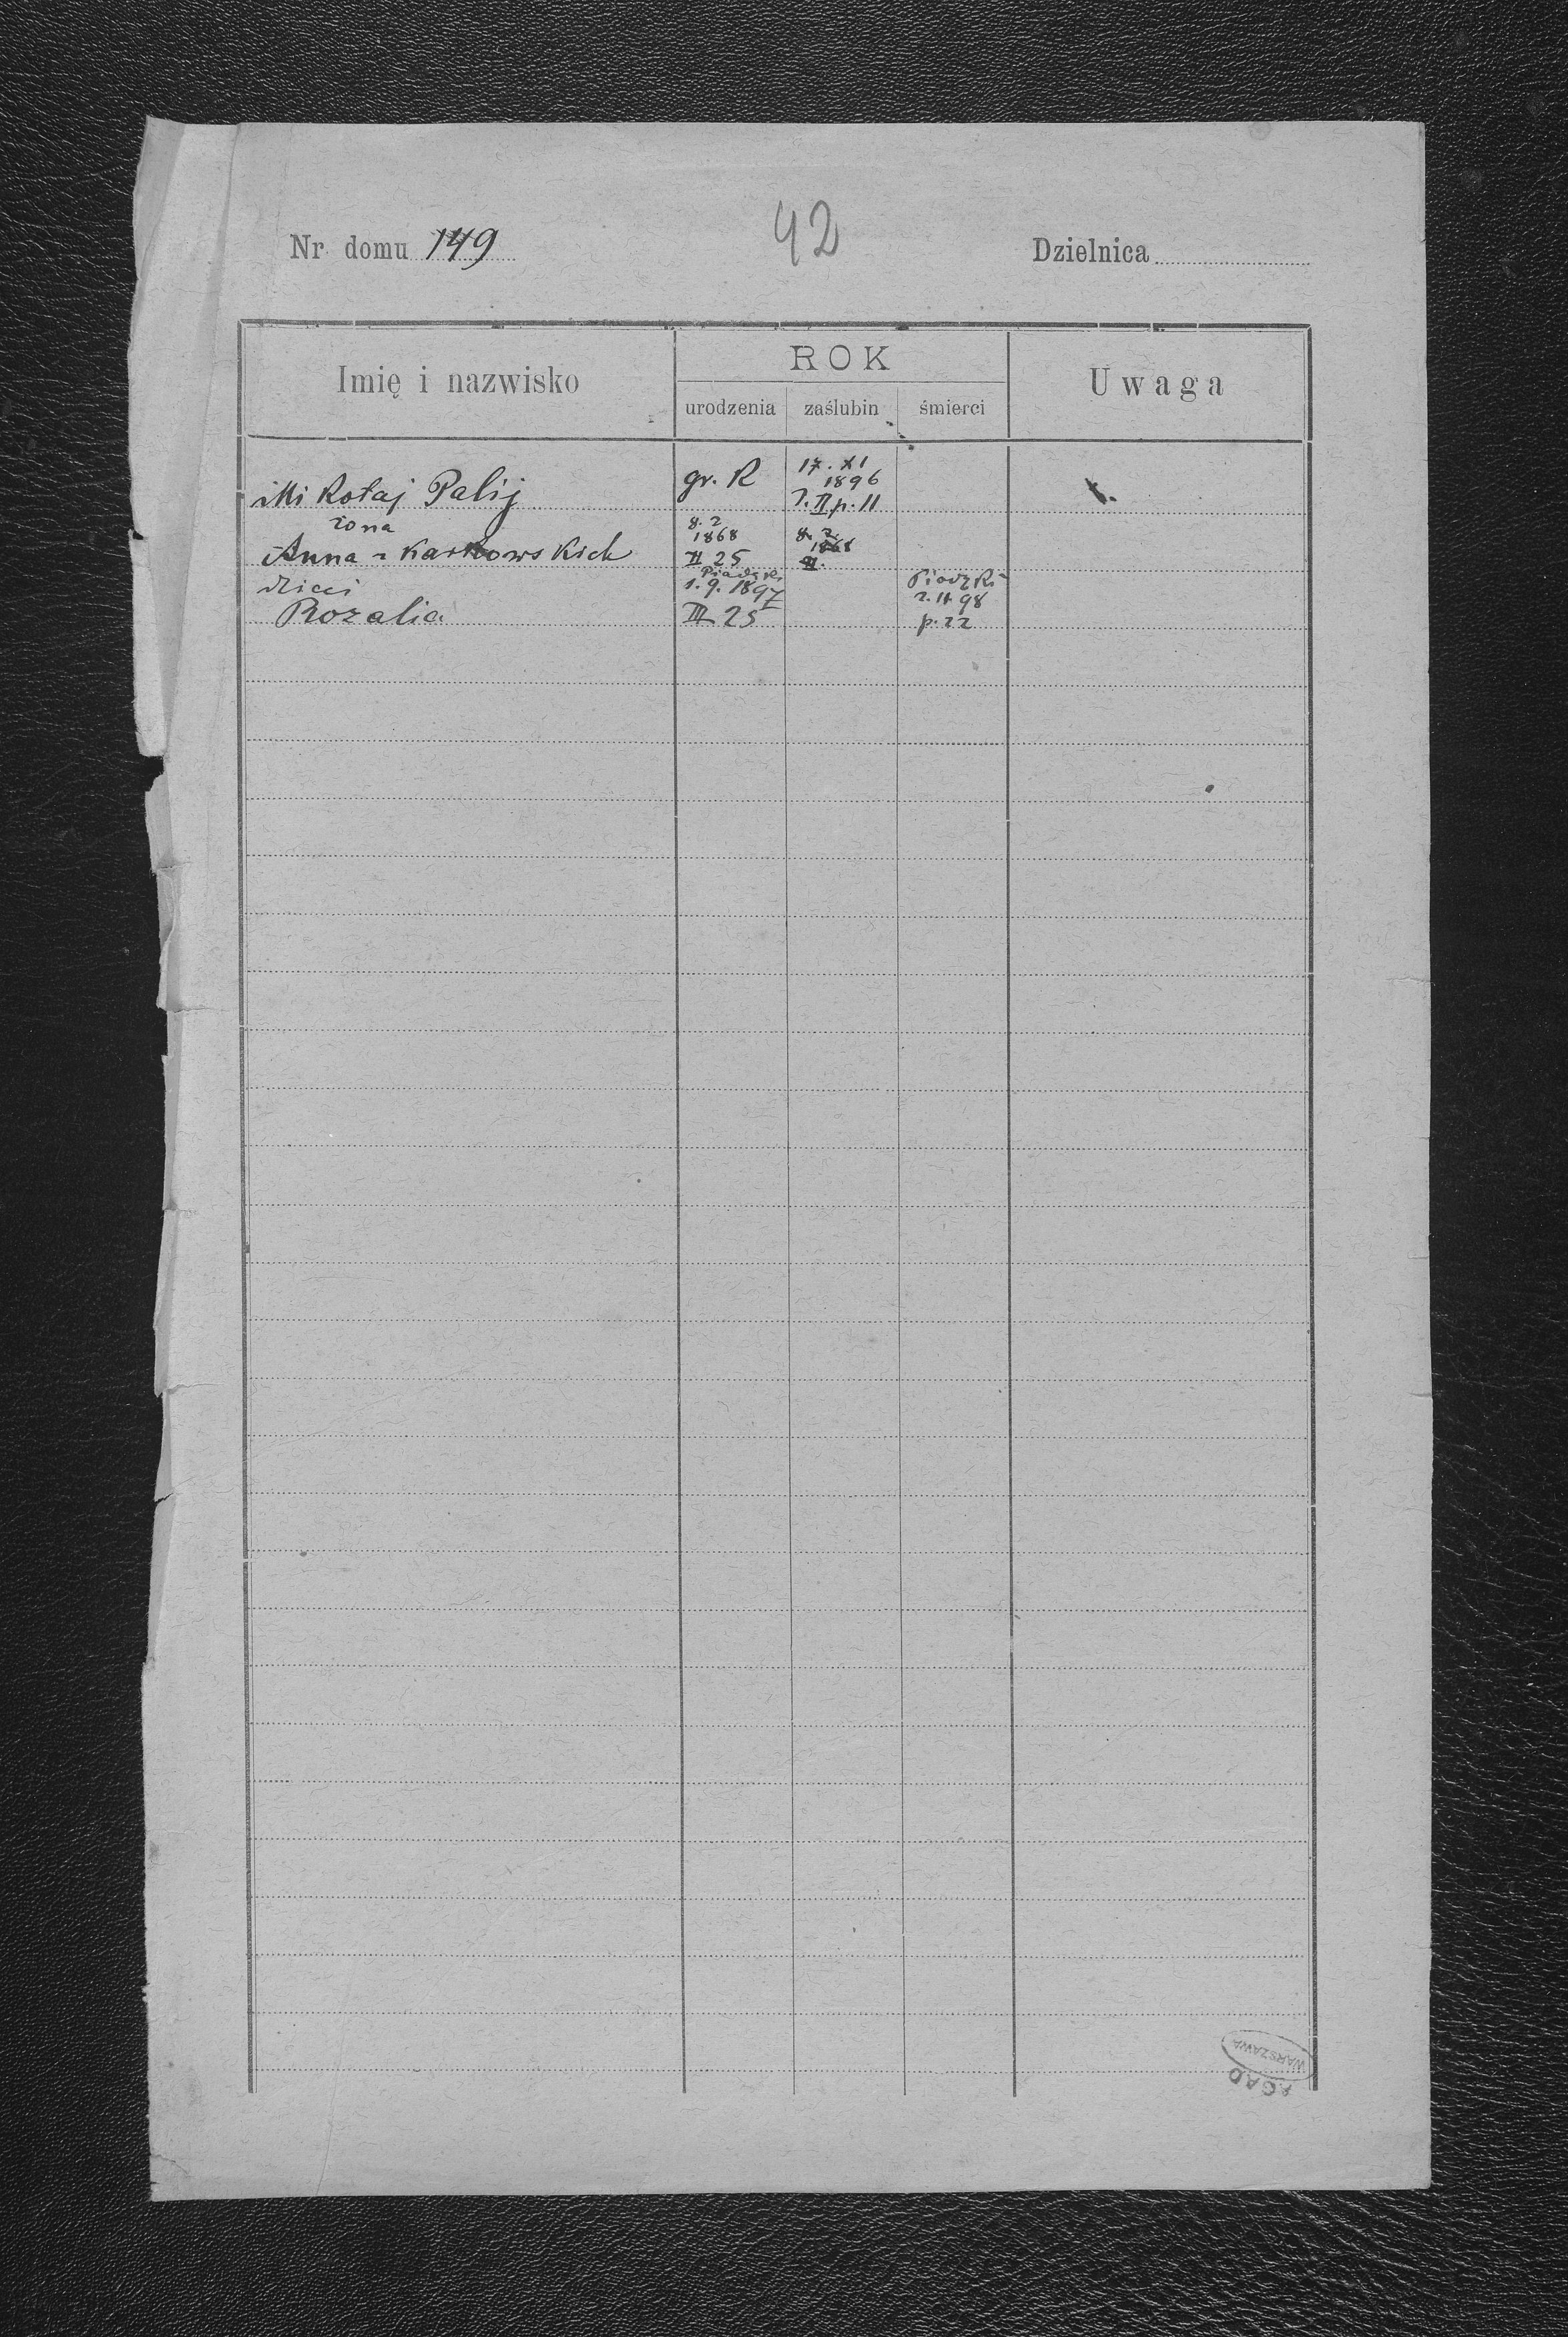 Nr domu 149
42
Dzielnica
Imię i nazwisko
ROK
urodzenia
zaślubin
śmierci
Uwaga
Mikołaj Palij
gr. R
17. XI
1896
T. II p. 11
t.
żona
Anna z Karkowskich
8. 2
1868
II 25
8. 2.
1868
II.
dzieci
Rozalia
Piadyki
1. 9. 1897
III 25
Piadyki
98
p. 22
AGAD
WARSZAWA